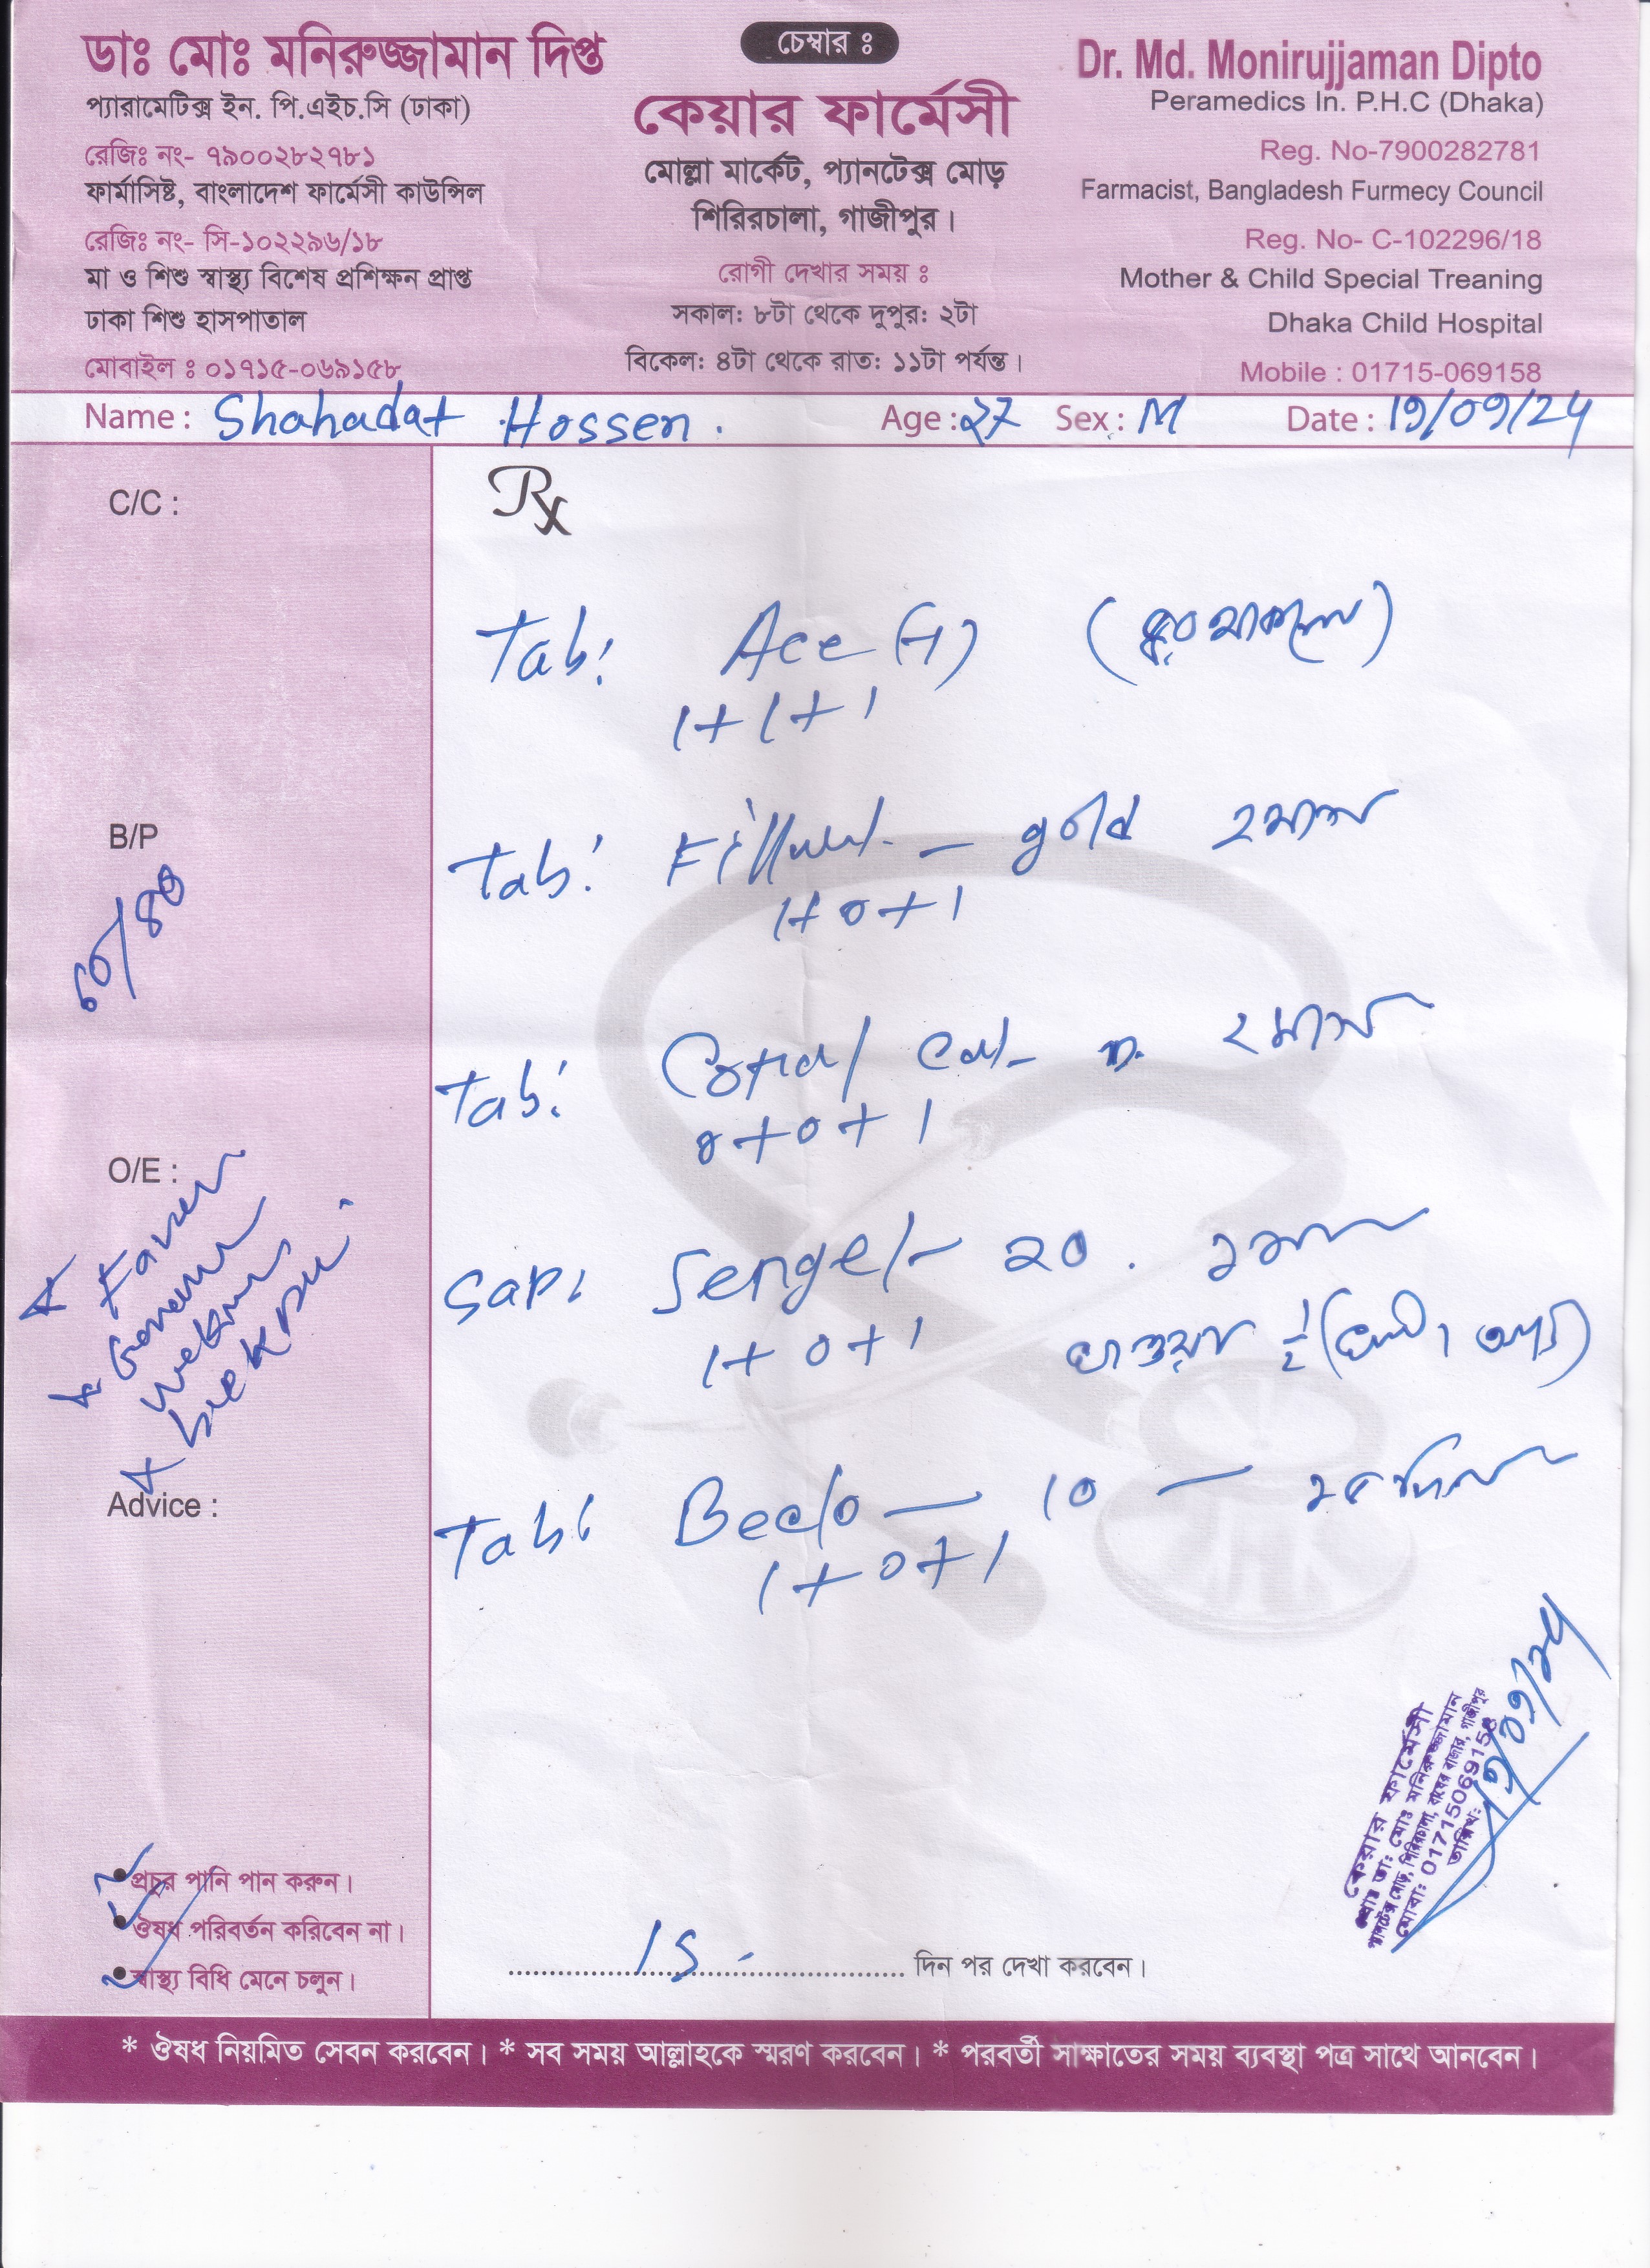 ডাঃ মোঃ মনিরুজ্জামান দিপ্ত
প্যারামেটিক্স ইন. পি.এইচ.সি (ঢাকা)
রেজিঃ নং- ৭৯০০২৮২৭৮১
ফার্মাসিষ্ট, বাংলাদেশ ফার্মেসী কাউন্সিল
রেজিঃ নং- সি-১০২২৯৬/১৮
মা ও শিশু স্বাস্থ্য বিশেষ প্রশিক্ষন প্রাপ্ত
ঢাকা শিশু হাসপাতাল
মোবাইল ঃ ০১৭১৫-০৬৯১৫৮
চেম্বার ঃ
কেয়ার ফার্মেসী
মোল্লা মার্কেট, প্যানটেক্স মোড়
শিরিরচালা, গাজীপুর।
রোগী দেখার সময় ঃ
সকাল: ৮টা থেকে দুপুর: ২টা
বিকেল: ৪টা থেকে রাত: ১১টা পর্যন্ত।
Dr. Md. Monirujjaman Dipto
Peramedics In. P.H.C (Dhaka)
Reg. No-7900282781
Farmacist, Bangladesh Furmecy Council
Reg. No- C-102296/18
Mother & Child Special Treaning
Dhaka Child Hospital
Mobile : 01715-069158
Name : Shahadat Hossen. Age : ২৭ Sex : M Date : 19/09/24
C/C :
B/P
O/E :
Advice :
Rx
Tab: Ace (+)
1+1+1
Tab: - gold ২ মাস
1+0+1
Tab: ২ মাস
0+0+1
Cap: Sergel- 20. ১ মাস
1+0+1 খাওয়ার ½
Tab: 10 —
1+0+1
প্রচুর পানি পান করুন।
ঔষধ পরিবর্তন করিবেন না।
স্বাস্থ্য বিধি মেনে চলুন।
15 দিন পর দেখা করবেন।
কেয়ার ফার্মেসী
মোবা: 01715069158
তারিখ:
* ঔষধ নিয়মিত সেবন করবেন। * সব সময় আল্লাহকে স্মরণ করবেন। * পরবর্তী সাক্ষাতের সময় ব্যবস্থা পত্র সাথে আনবেন।